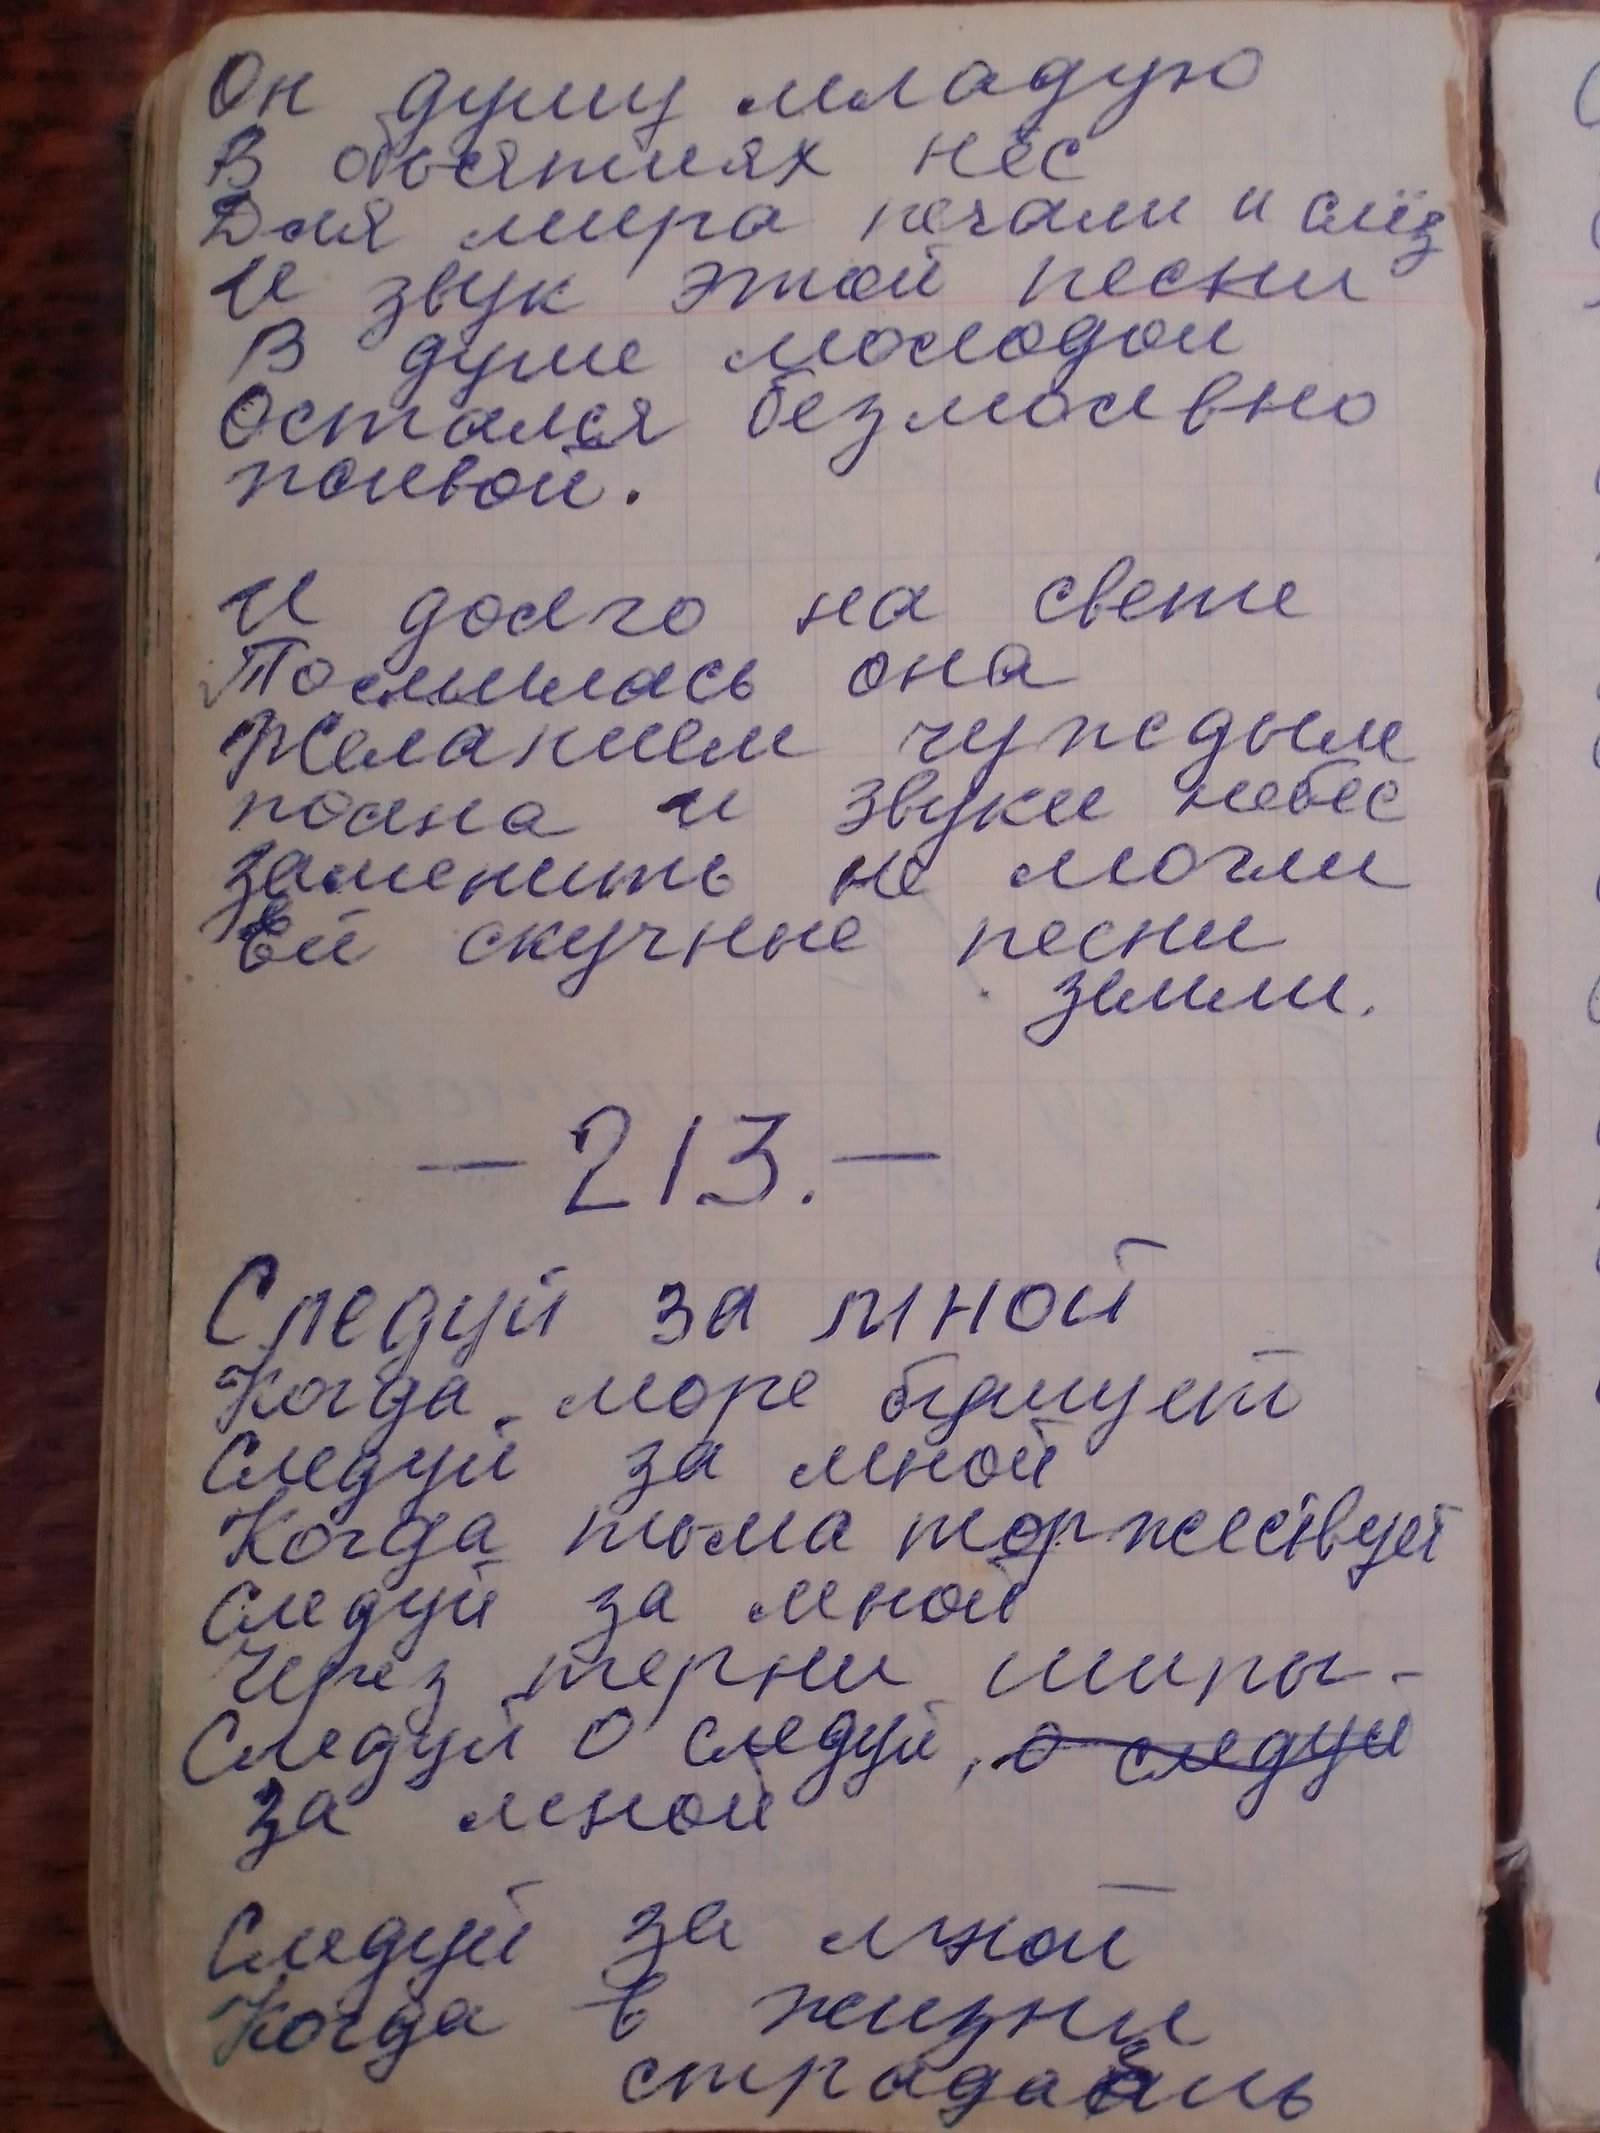 Он душу младую
В объятиях нёс
Для мира печали и слёз
И звук этой песни
В душе молодой
Остался безмолвно
полвой.
И долго на свете
Томилась она
Желанием чуждым
полна и звуки небес
заменить не могли
Ей скучные песни
земли.
— 213. —
Следуй за мной
Когда море бушует
Следуй за мной
Когда тьма торжествует
Следуй за мной
Через терни шипы -
Следуй о следуй, о следуй
за мной
Следуй за мной
Когда в жизни
страдаешь